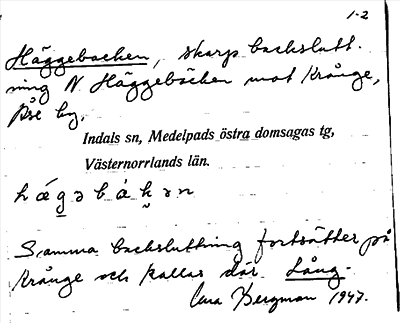 1-2
Häggebacken, skarp backslutt-
ning N Häggebäcken mot Krånge,
Åse by.
Indals sn, Medelpads östra domsagas tg,
Västernorrlands län.
Samma backsluttning fortsätter på
Krånge och kallas där Lång-
Bergman 1947.